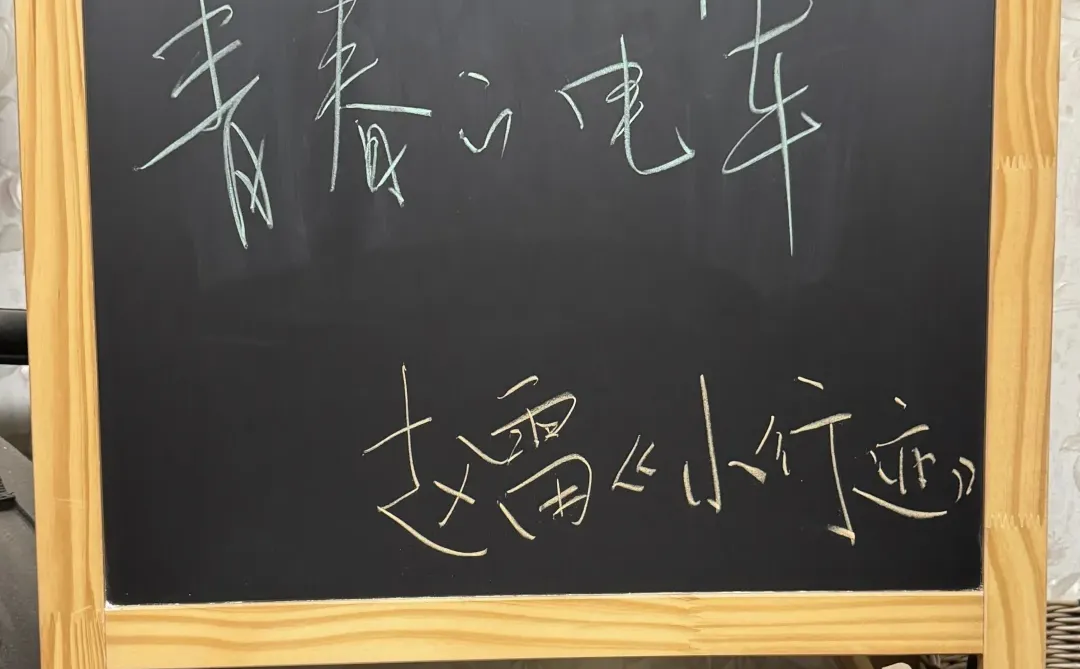 青春的电车
赵雷《小行迹》